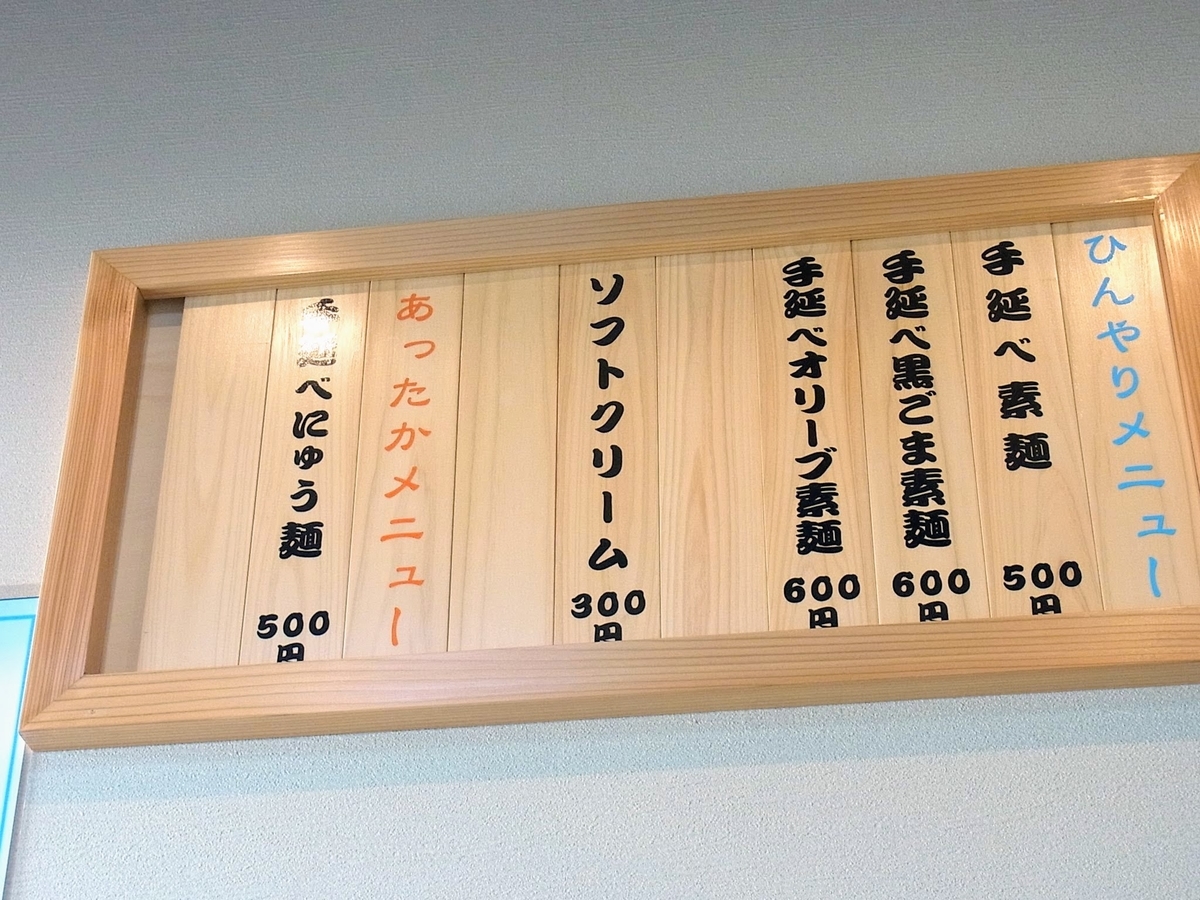 ひんやりメニュー
手延べ素麺
500円
手延べ黒ごま素麺
600円
手延べオリーブ素麺
600円
ソフトクリーム
300円
あったかメニュー
手延べにゅう麺
500円